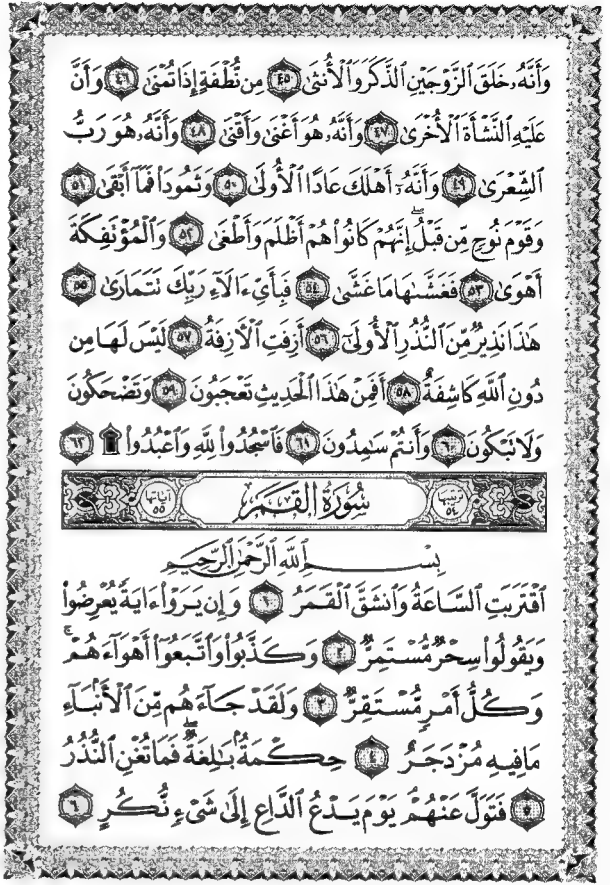 وَأَنَّهُۥ خَلَقَ ٱلزَّوْجَيْنِ ٱلذَّكَرَ وَٱلْأُنثَىٰ ٤٥ مِن نُّطْفَةٍ إِذَا تُمْنَىٰ ٤٦ وَأَنَّ
عَلَيْهِ ٱلنَّشْأَةَ ٱلْأُخْرَىٰ ٤٧ وَأَنَّهُۥ هُوَ أَغْنَىٰ وَأَقْنَىٰ ٤٨ وَأَنَّهُۥ هُوَ رَبُّ
ٱلشِّعْرَىٰ ٤٩ وَأَنَّهُۥٓ أَهْلَكَ عَادًا ٱلْأُولَىٰ ٥٠ وَثَمُودَا۟ فَمَآ أَبْقَىٰ ٥١
وَقَوْمَ نُوحٍ مِّن قَبْلُ ۖ إِنَّهُمْ كَانُوا۟ هُمْ أَظْلَمَ وَأَطْغَىٰ ٥٢ وَٱلْمُؤْتَفِكَةَ
أَهْوَىٰ ٥٣ فَغَشَّىٰهَا مَا غَشَّىٰ ٥٤ فَبِأَىِّ ءَالَآءِ رَبِّكَ تَتَمَارَىٰ ٥٥
هَٰذَا نَذِيرٌ مِّنَ ٱلنُّذُرِ ٱلْأُولَىٰٓ ٥٦ أَزِفَتِ ٱلْأَزِفَةُ ٥٧ لَيْسَ لَهَا مِن
دُونِ ٱللَّهِ كَاشِفَةٌ ٥٨ أَفَمِنْ هَٰذَا ٱلْحَدِيثِ تَعْجَبُونَ ٥٩ وَتَضْحَكُونَ
وَلَا تَبْكُونَ ٦٠ وَأَنتُمْ سَٰمِدُونَ ٦١ فَٱسْجُدُوا۟ لِلَّهِ وَٱعْبُدُوا۟ ۩ ٦٢
ترتيبها ٥٤ سُورَةُ القَمَرِ آياتها ٥٥
بِسْمِ ٱللَّهِ ٱلرَّحْمَٰنِ ٱلرَّحِيمِ
ٱقْتَرَبَتِ ٱلسَّاعَةُ وَٱنشَقَّ ٱلْقَمَرُ ١ وَإِن يَرَوْا۟ ءَايَةً يُعْرِضُوا۟
وَيَقُولُوا۟ سِحْرٌ مُّسْتَمِرٌّ ٢ وَكَذَّبُوا۟ وَٱتَّبَعُوٓا۟ أَهْوَآءَهُمْ ۚ
وَكُلُّ أَمْرٍ مُّسْتَقِرٌّ ٣ وَلَقَدْ جَآءَهُم مِّنَ ٱلْأَنۢبَآءِ
مَا فِيهِ مُزْدَجَرٌ ٤ حِكْمَةٌۢ بَٰلِغَةٌ ۖ فَمَا تُغْنِ ٱلنُّذُرُ
٥ فَتَوَلَّ عَنْهُمْ ۘ يَوْمَ يَدْعُ ٱلدَّاعِ إِلَىٰ شَىْءٍ نُّكُرٍ ٦